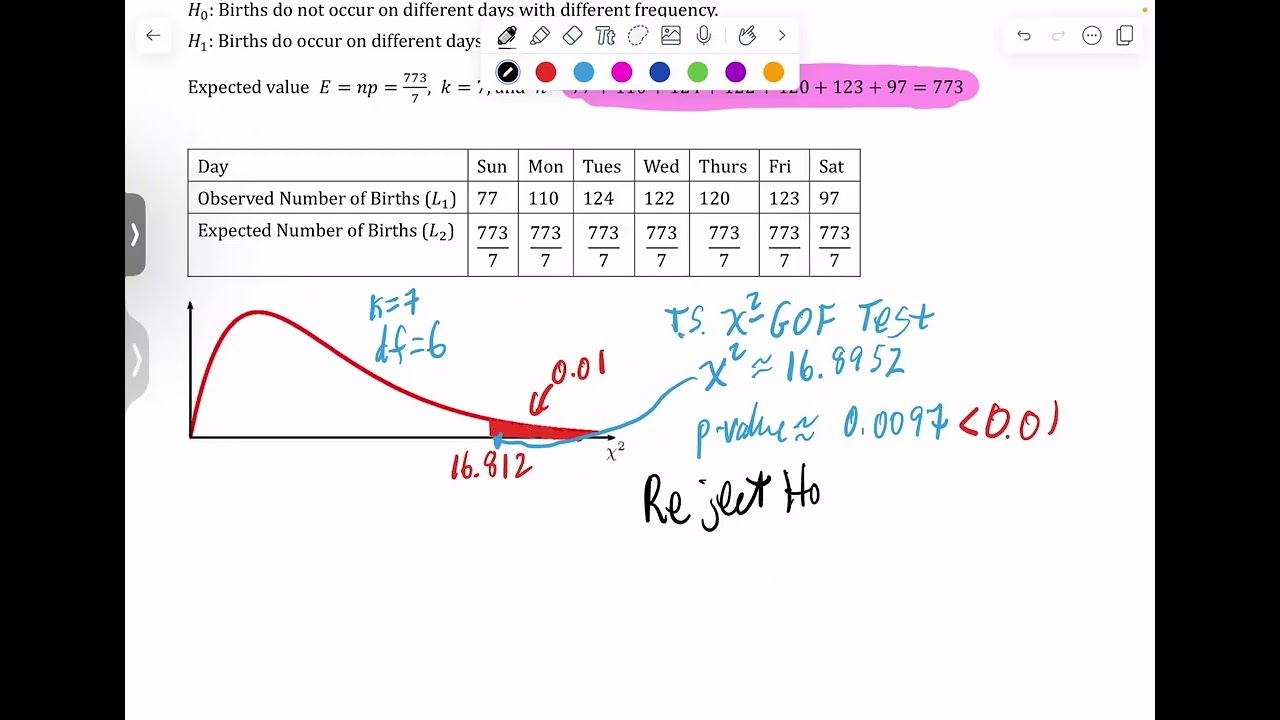 H₀: Births do not occur on different days with different frequency.
H₁: Births do occur on different days
Expected value E = np = 773/7, k = 7, and + 123 + 97 = 773
Day Sun Mon Tues Wed Thurs Fri Sat
Observed Number of Births (L₁) 77 110 124 122 120 123 97
Expected Number of Births (L₂) 773/7 773/7 773/7 773/7 773/7 773/7 773/7
K=7
df=6
0.01
16.812
χ²
T.S. χ² GOF Test
χ² ≈ 16.8952
p-value ≈ 0.0097 <0.01
Reject Ho
Tt